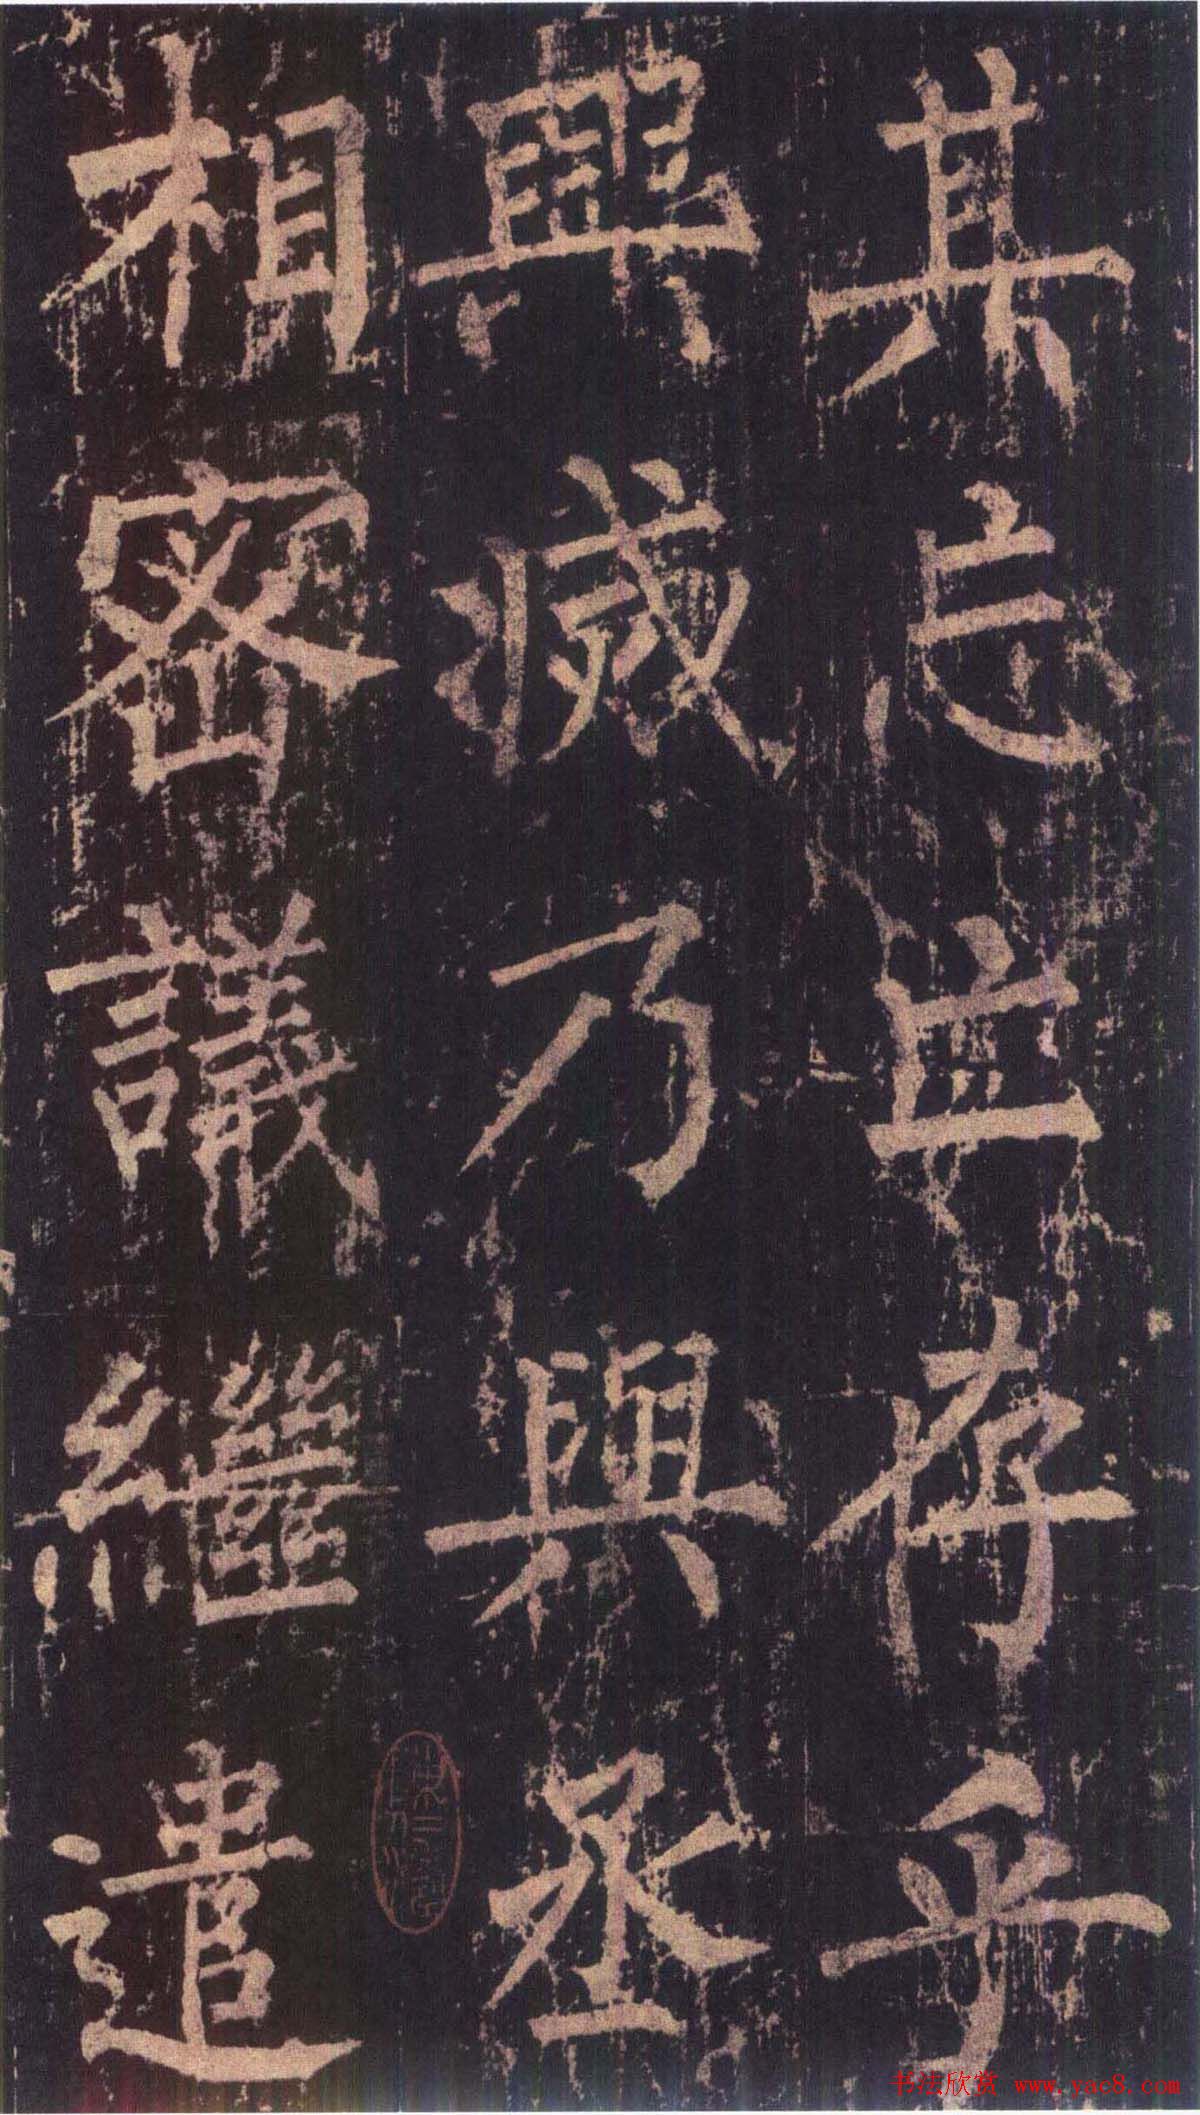 其志亡存乎
興滅乃與丞
相密議繼遣
书法欣赏 www.yac8.com